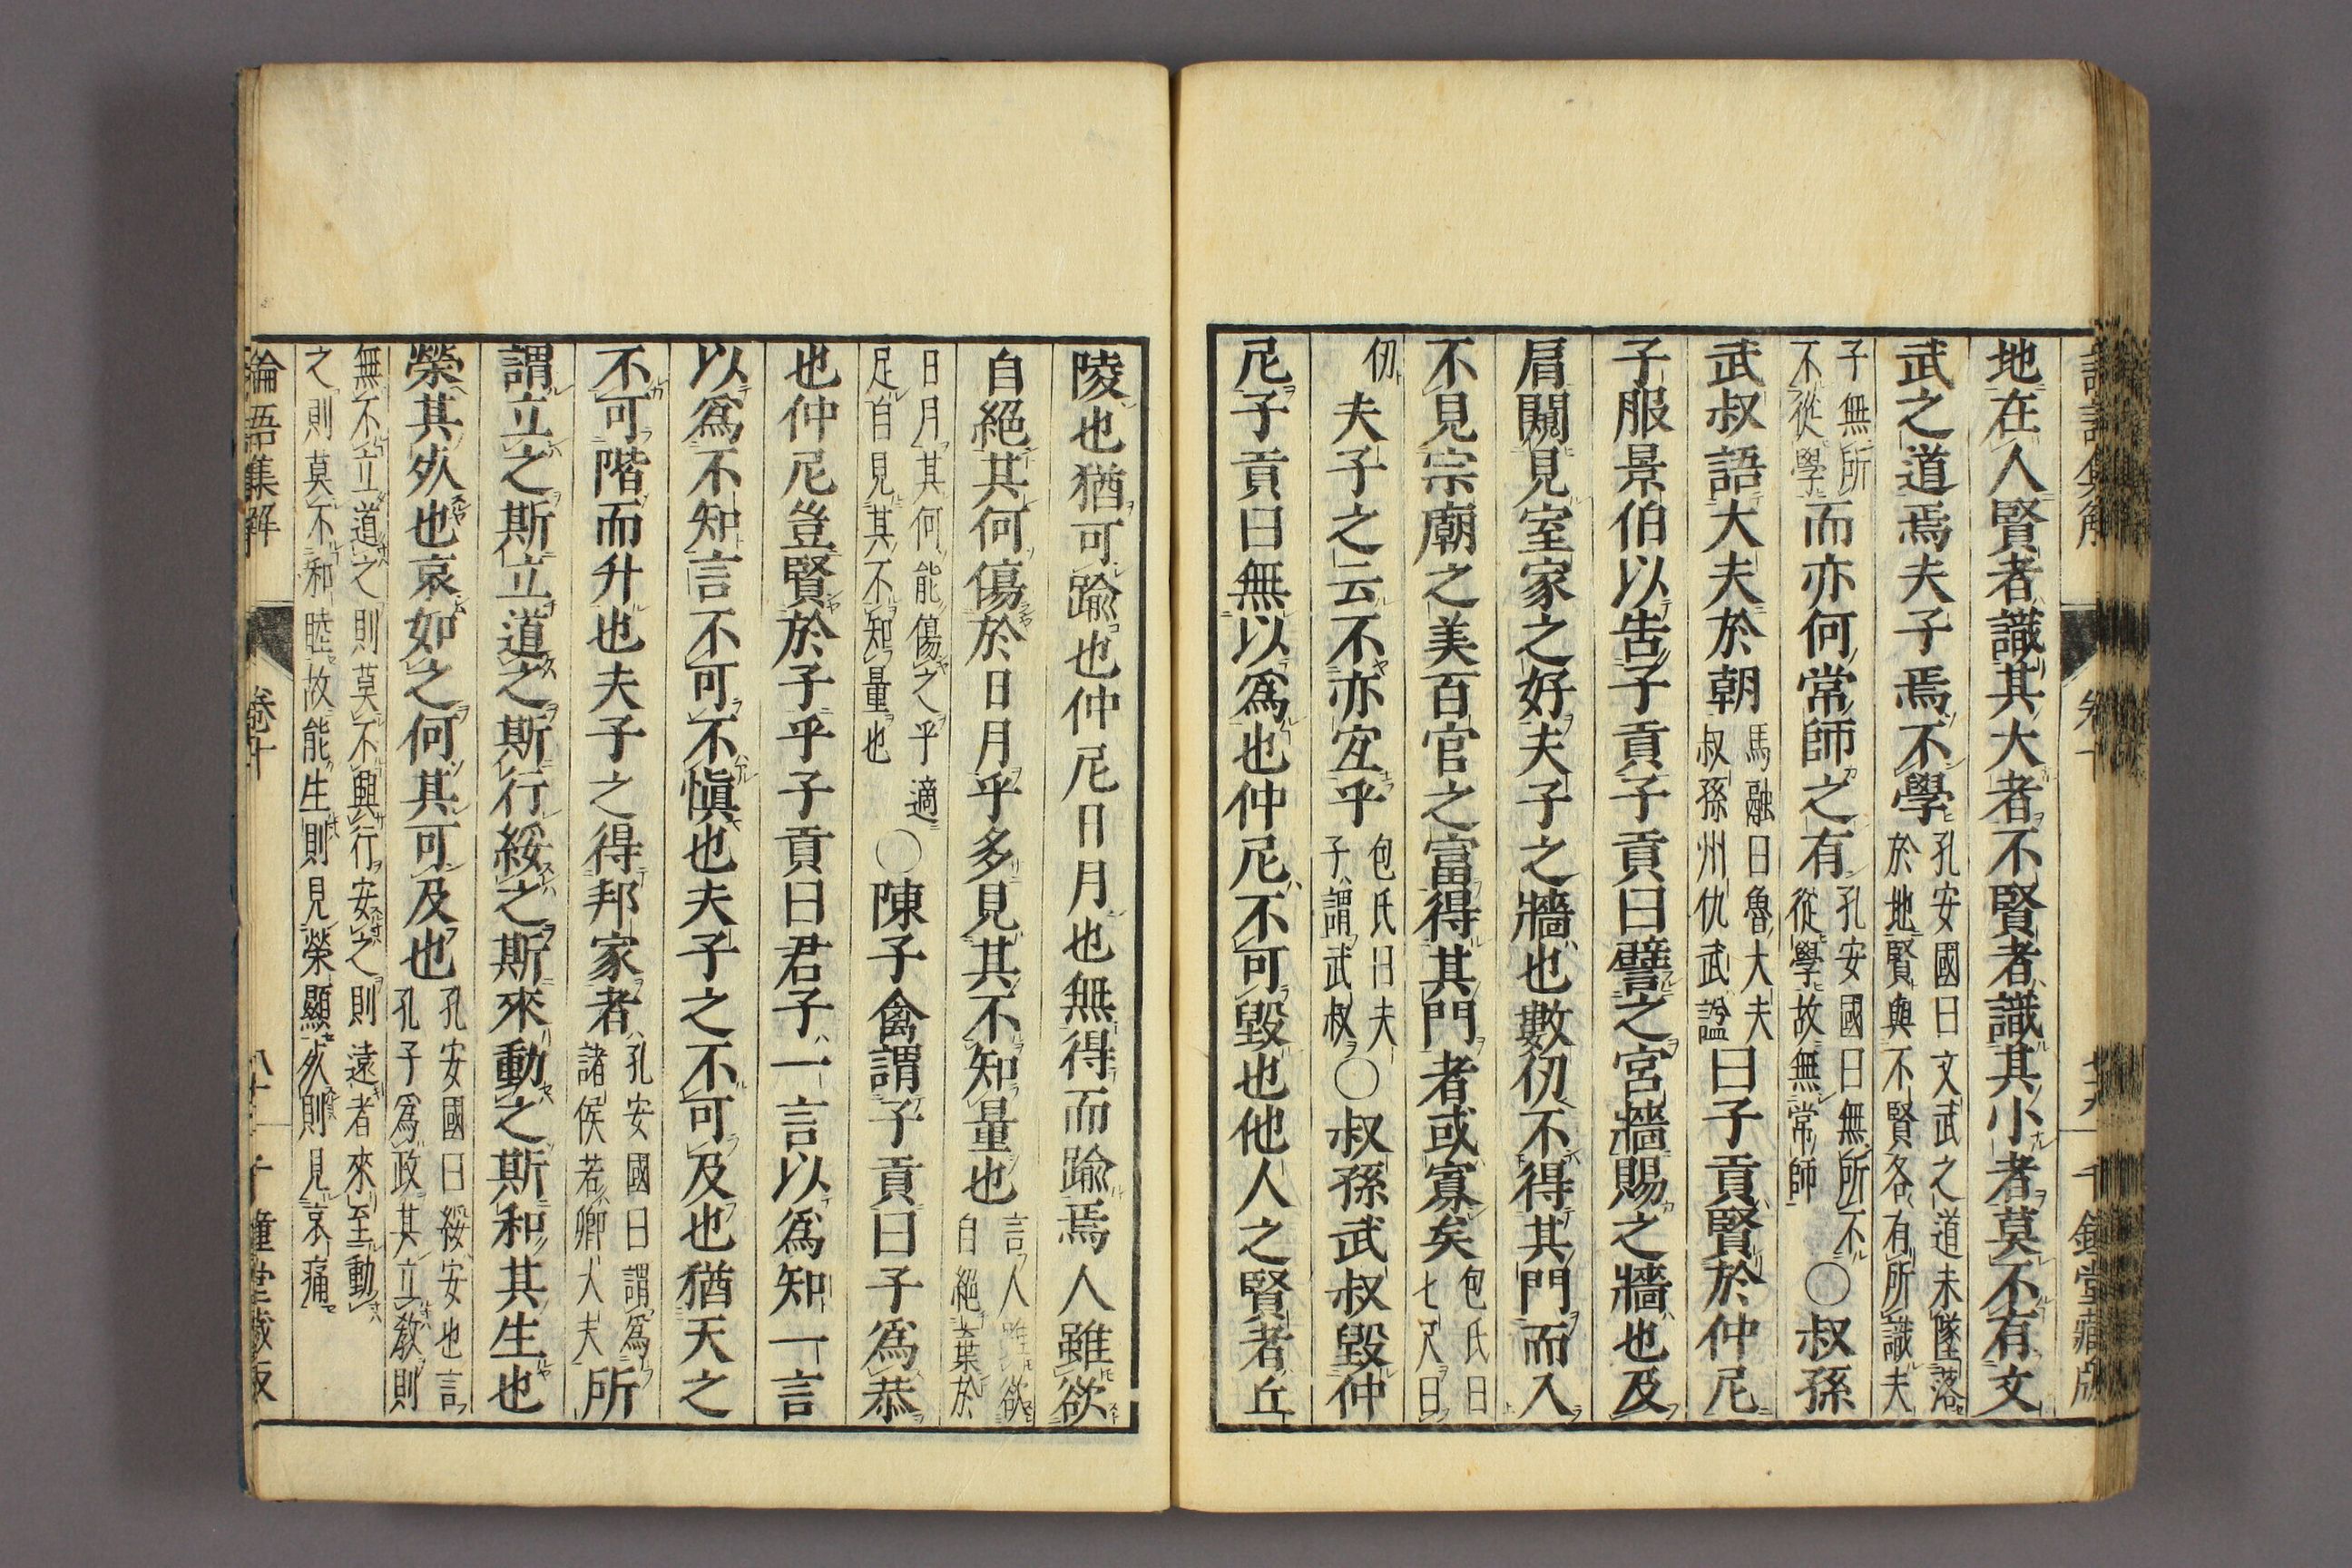 地在人賢者識其大者不賢者識其小者莫不有文
武之道焉夫子焉不學孔安國曰文武之道未墜落於地賢與不賢各有所識夫
子無所不從學而亦何常師之有孔安國曰無所不從學故無常師〇叔孫
武叔語大夫於朝馬融曰魯大夫叔孫州仇武諡曰子貢賢於仲尼
子服景伯以告子貢子貢曰譬之宮牆賜之牆也及
肩闚見室家之好夫子之牆也數仞不得其門而入
不見宗廟之美百官之富得其門者或寡矣包氏曰七尺曰
仞夫子之云不亦宜乎包氏曰夫子謂武叔〇叔孫武叔毀仲
尼子貢曰無以爲也仲尼不可毀也他人之賢者丘
陵也猶可踰也仲尼日月也無得而踰焉人雖欲
自絕其何傷於日月乎多見其不知量也言人雖欲自絕棄於
日月其何能傷之乎適足自見其不知量也〇陳子禽謂子貢曰子爲恭
也仲尼豈賢於子乎子貢曰君子一言以爲知一言
以爲不知言不可不愼也夫子之不可及也猶天之
不可階而升也夫子之得邦家者孔安國曰謂爲諸侯若卿大夫所
謂立之斯立道之斯行綏之斯來動之斯和其生也
榮其死也哀如之何其可及也孔安國曰綏安也言孔子爲政其立敎則
無不立道之則莫不興行安之則遠者來至動之則莫不和睦故能生則見榮顯死則見哀痛
論語集解 卷十 千鍾堂藏版